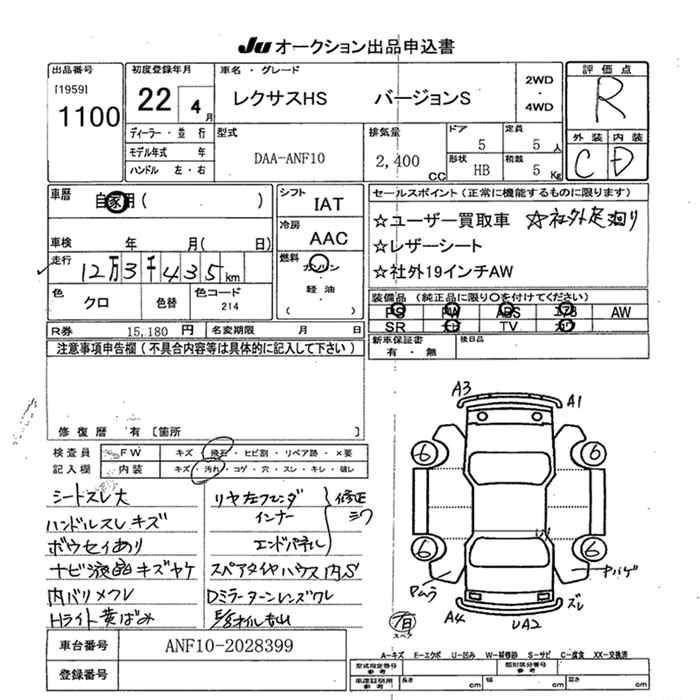 Ju オークション出品申込書
出品番号
[1959]
1100
初度登録年月
22 4 月
ディーラー・並行
モデル年式 年
ハンドル 左・右
車名・グレード
レクサスHS バージョンS
2WD
・
4WD
型式
DAA-ANF10
排気量
2,400 CC
ドア
5
定員
5 人
形状
HB
積載
5 Kg
評価点
R
外装 内装
C D
車歴
自家用( )
車検 年 月( 日)
走行
12万3千435km
色
クロ
色替
色コード
214
R券 15,180 円
名変期限 月 日
シフト
IAT
冷房
AAC
燃料
ガソリン
・
軽油
( )
セールスポイント(正常に機能するものに限ります)
☆ユーザー買取車 ☆社外足廻り
☆レザーシート
☆社外19インチAW
装備品(純正品に限り○を付けてください)
PS PW ABS エアB AW
SR ナビ TV カワ
新車保証書
有・無
後日品
注意事項申告欄(不具合内容等は具体的に記入して下さい)
修復歴 有[箇所
検査員
記入欄
FW
キズ・飛石・ヒビ割・リペア跡・×要
内装
キズ・汚れ・コゲ・穴・スレ・キレ・破レ
シートスレ大
ハンドルスレキズ
ボウセイあり
ナビ液晶キズヤケ
内バリメクレ
Hライト黄ばみ
リヤ左フェンダ
インナー
エンドパネル
修正
シワ
スペアタイヤハウス内S
Dミラーターンレンズワレ
A3
A1
6
6
6
6
A4
UA2
ズレ
Pハゲ
車台番号
ANF10-2028399
登録番号
A-キズ E-エクボ U-凹み W-補修跡 S-サビ C-腐食 XX-交換済
型式指定番号
参考
類別区分番号
参考
車庫証明用
参考
長さ cm
幅 cm
高さ cm